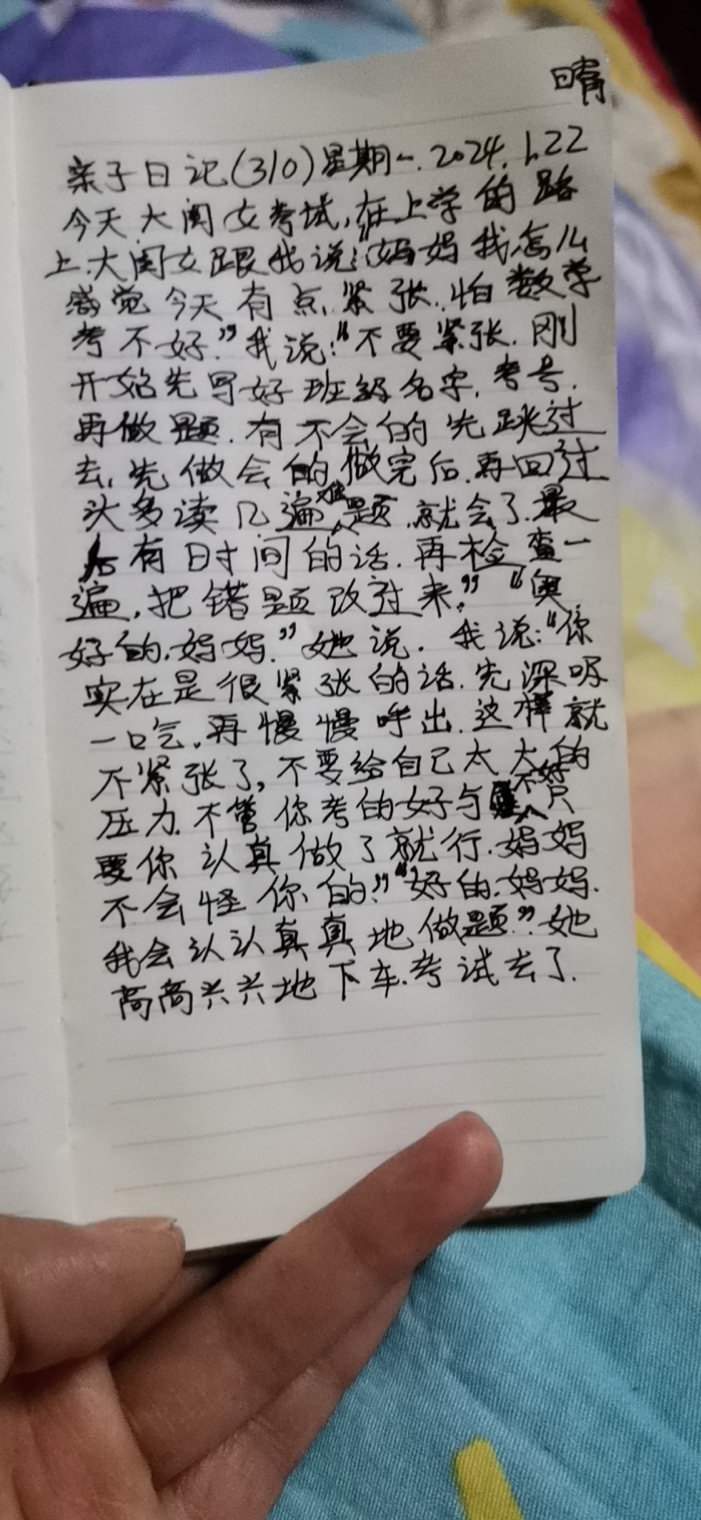 晴
亲子日记(310)星期一.2024.1.22
今天大闺女考试,在上学的路
上.大闺女跟我说:“妈妈我怎么
感觉今天有点紧张.怕数学
考不好.”我说:“不要紧张.刚
开始先写好班级名字.考号.
再做题.有不会的先跳过
去,先做会的做完后.再回过
头多读几遍做题.就会了.最
后有时间的话.再检查一
遍,把错题改过来.”“奥
好的.妈妈.”她说.我说:“你
实在是很紧张的话.先深呼
一口气.再慢慢呼出.这样就
不紧张了,不要给自己太大的
压力.不管你考的好与不好只
要你认真做了就行.妈妈
不会怪你的.”“好的.妈妈.
我会认认真真地做题.”她
高高兴兴地下车.考试去了.